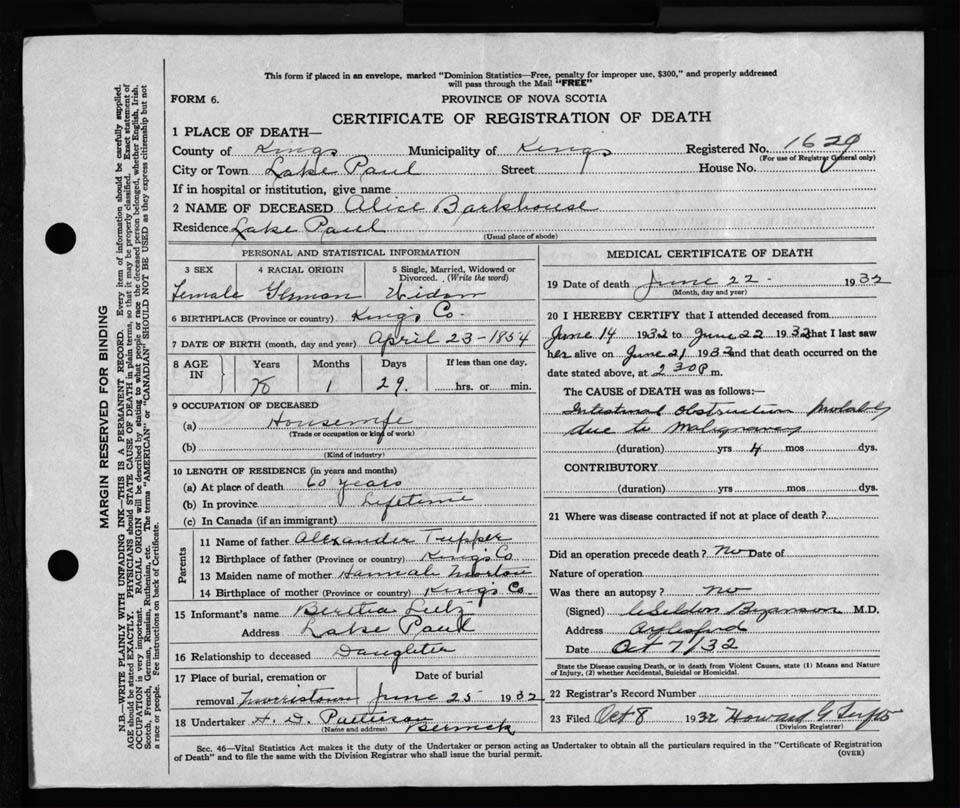 This form if placed in an envelope, marked "Dominion Statistics—Free, penalty for improper use, $300," and properly addressed
will pass through the Mail "FREE"
FORM 6.
PROVINCE OF NOVA SCOTIA
CERTIFICATE OF REGISTRATION OF DEATH
1 PLACE OF DEATH—
County of Kings Municipality of Kings Registered No. 1629
(For use of Registrar General only)
City or Town Lake Paul Street House No.
If in hospital or institution, give name
2 NAME OF DECEASED Alice Barkhouse
Residence Lake Paul
(Usual place of abode)
PERSONAL AND STATISTICAL INFORMATION
3 SEX 4 RACIAL ORIGIN 5 Single, Married, Widowed or Divorced. (Write the word)
Female German Widow
6 BIRTHPLACE (Province or country) Kings Co.
7 DATE OF BIRTH (month, day and year) April 23-1854
8 AGE IN Years Months Days If less than one day,
78 1 29. hrs. or min.
9 OCCUPATION OF DECEASED
(a) Housewife
(Trade or occupation or kind of work)
(b)
(Kind of industry)
10 LENGTH OF RESIDENCE (in years and months)
(a) At place of death 60 years
(b) In province Lifetime
(c) In Canada (if an immigrant)
Parents
11 Name of father Alexander Tupper
12 Birthplace of father (Province or country) King's Co
13 Maiden name of mother Hannah Morton
14 Birthplace of mother (Province or country) King's Co.
15 Informant's name Bertha
Address Lake Paul
16 Relationship to deceased Daughter
17 Place of burial, cremation or removal Date of burial
Morristown June 25 1932
18 Undertaker H. D. Patterson
(Name and address) Berwick
MEDICAL CERTIFICATE OF DEATH
19 Date of death June 22 - 1932
(Month, day and year)
20 I HEREBY CERTIFY that I attended deceased from
June 14 1932 to June 22 1932 that I last saw
her alive on June 21 1932 and that death occurred on the
date stated above, at 2 30 P m.
The CAUSE OF DEATH was as follows:—
Intestinal Obstruction probably
due to Malignancy
(duration) yrs 4 mos dys.
CONTRIBUTORY
(duration) yrs mos dys.
21 Where was disease contracted if not at place of death?
Did an operation precede death? No Date of
Nature of operation
Was there an autopsy? No
(Signed) M.D.
Address Aylesford
Date Oct 7/32
State the Disease causing Death, or in death from Violent Causes, state (1) Means and Nature
of Injury, (2) whether Accidental, Suicidal or Homicidal.
22 Registrar's Record Number
23 Filed Oct 8 1932 Howard G
(Division Registrar)
Sec. 46—Vital Statistics Act makes it the duty of the Undertaker or person acting as Undertaker to obtain all the particulars required in the "Certificate of Registration
of Death" and to file the same with the Division Registrar who shall issue the burial permit.
(OVER)
MARGIN RESERVED FOR BINDING
N.B.—WRITE PLAINLY WITH UNFADING INK—THIS IS A PERMANENT RECORD. Every item of information should be carefully supplied.
AGE should be stated EXACTLY. PHYSICIANS should STATE CAUSE OF DEATH in plain terms, so that it may be properly classified. Exact statement of
OCCUPATION is very important. RACIAL ORIGIN will be described by stating to what people or race the deceased person belonged, whether English, Irish,
Scotch, French, German, Russian, Ruthenian, etc. The terms "AMERICAN" or "CANADIAN" SHOULD NOT BE USED as they express citizenship but not
a race or people. Fee instructions on back of Certificate.